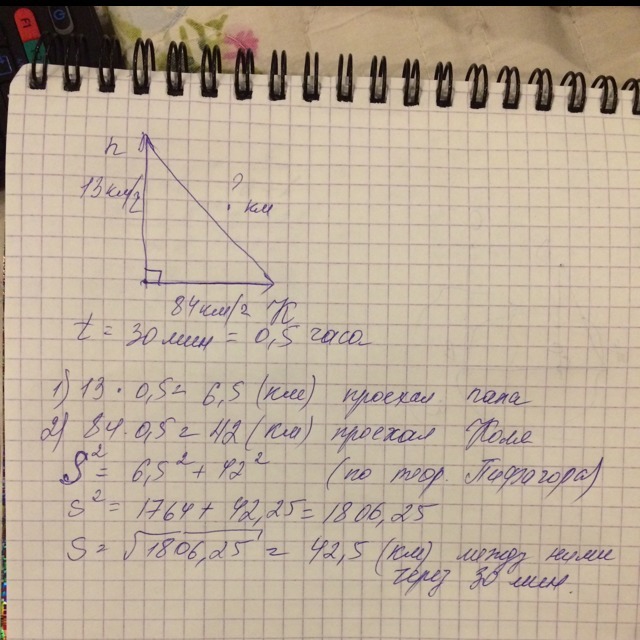 п
13 км/ч
?
км
84 км/ч К
t = 30 мин = 0,5 часа
1) 13 · 0,5 = 6,5 (км) проехал папа
2) 84 · 0,5 = 42 (км) проехал Коля
S² = 6,5² + 42² (по теор. Пифагора)
S² = 1764 + 42,25 = 1806,25
S = √1806,25 = 42,5 (км) между ними
через 30 мин.